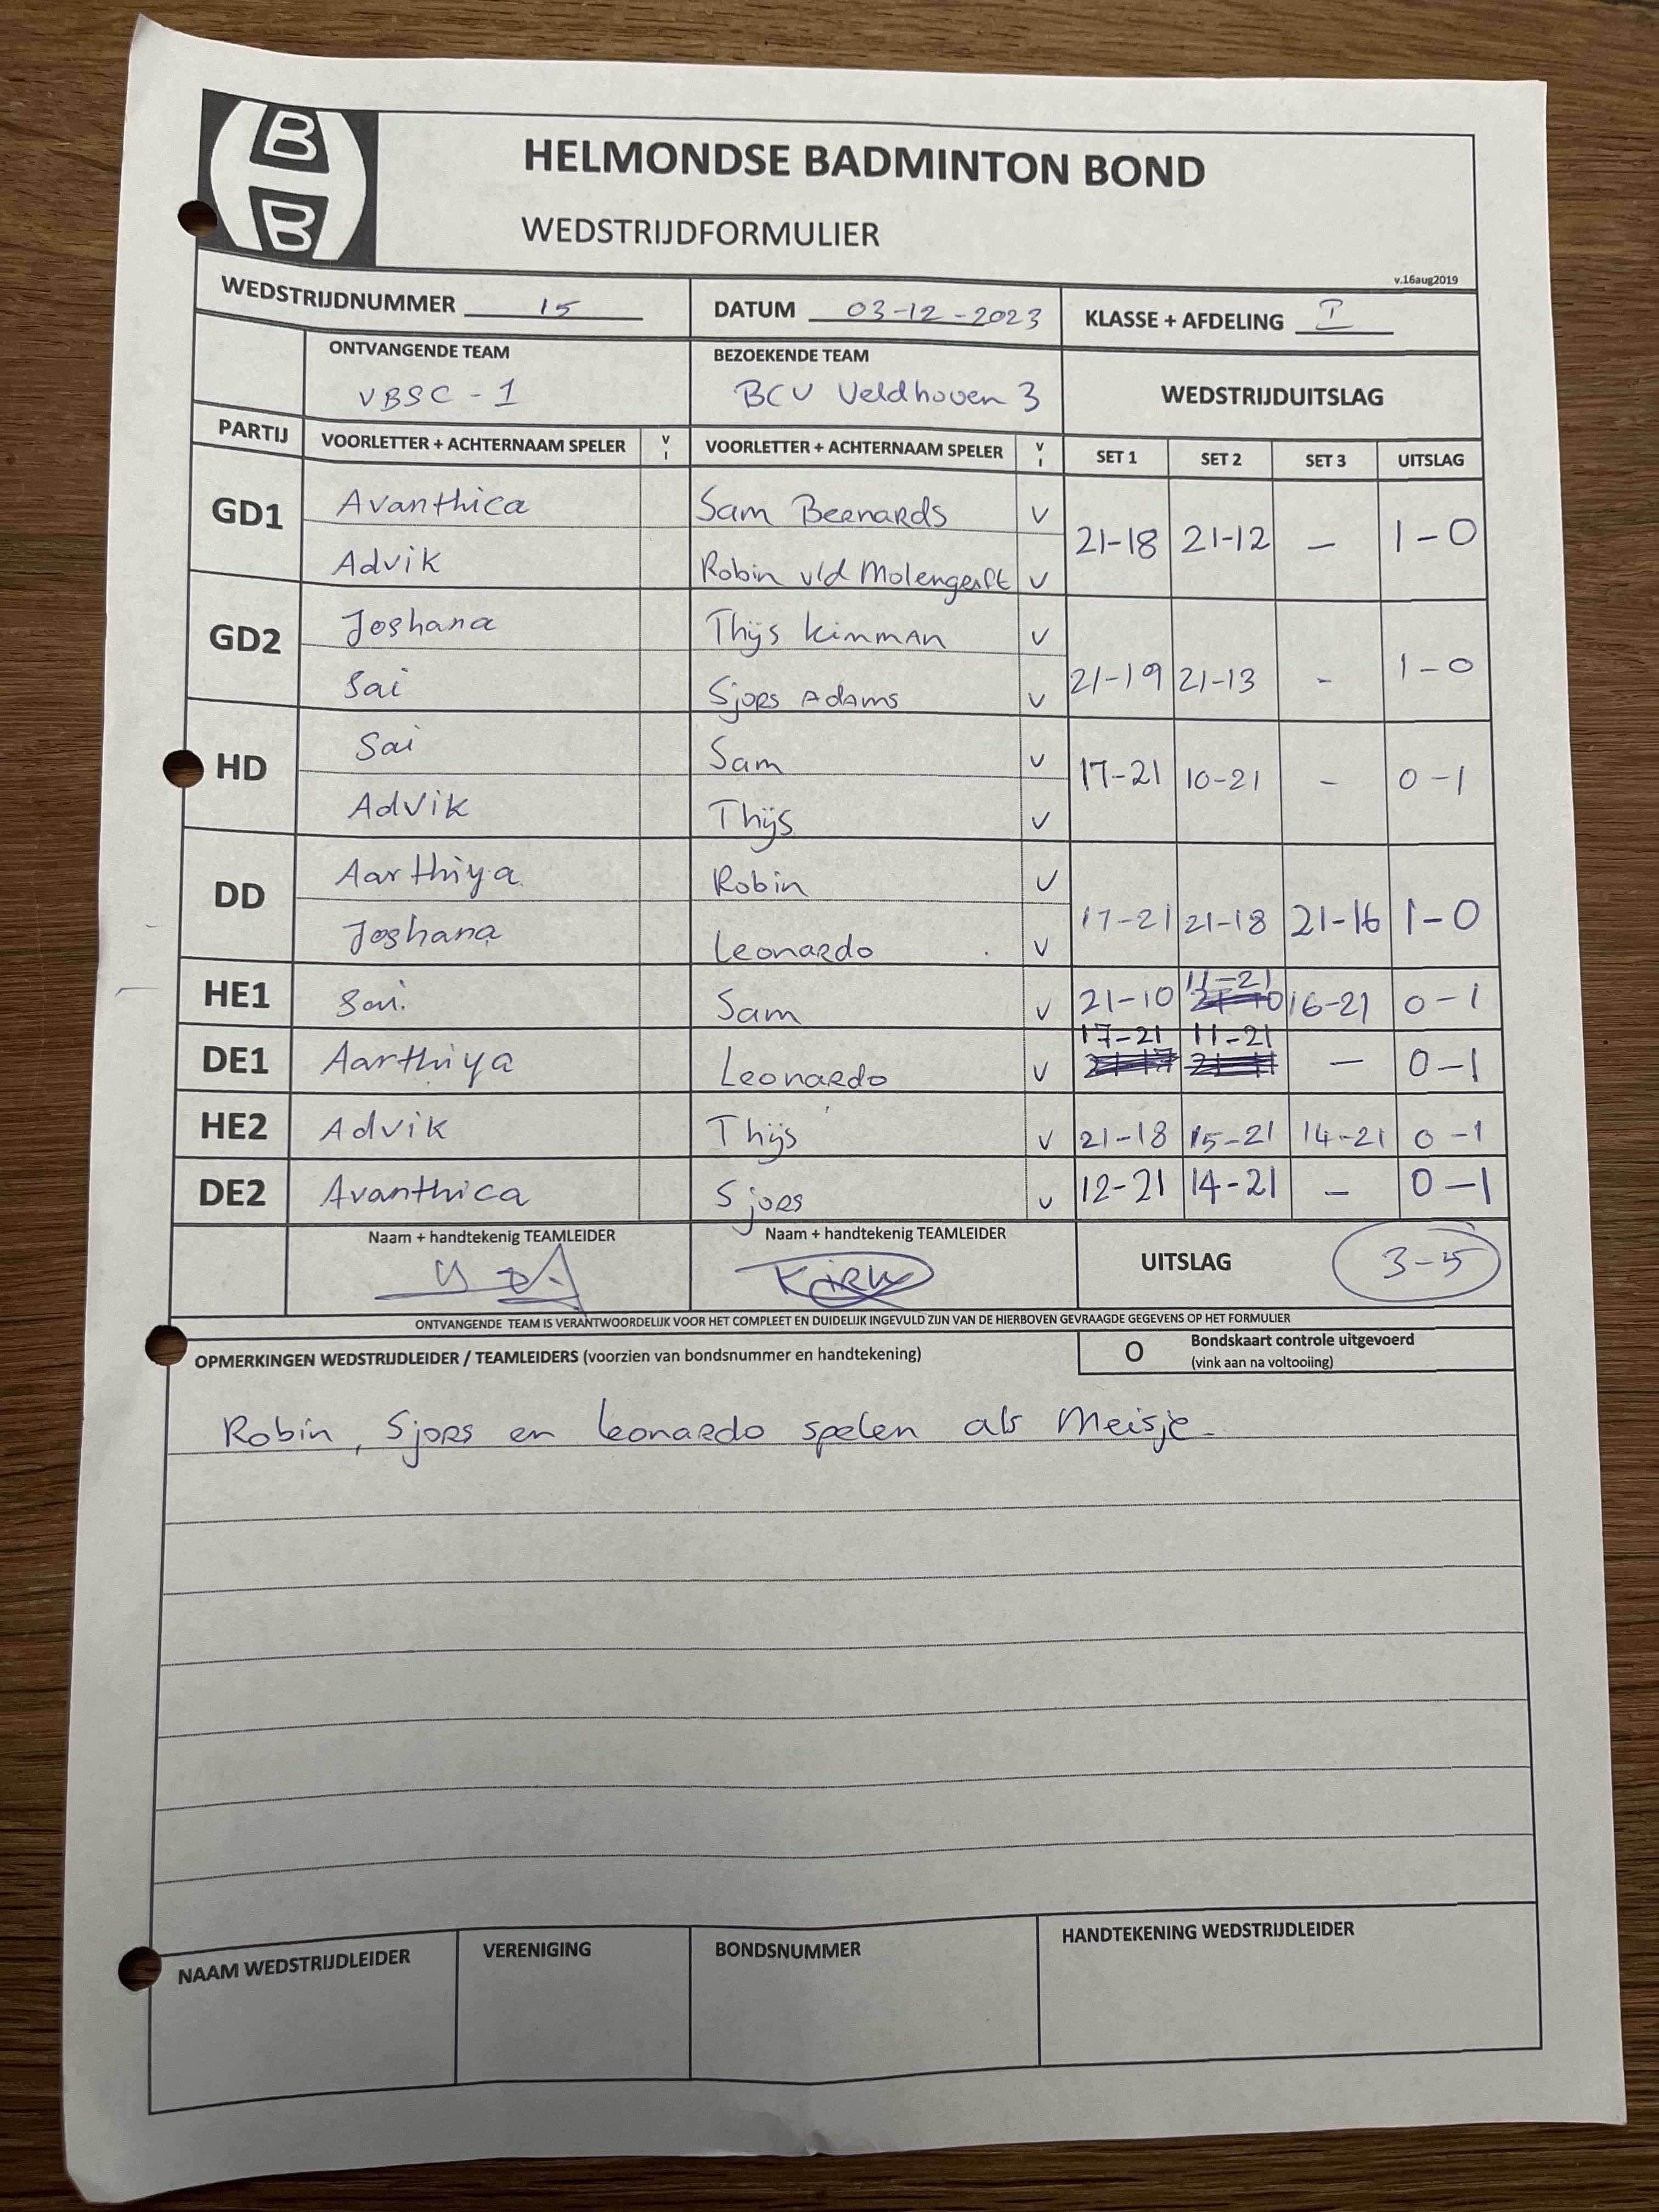 B
B
HELMONDSE BADMINTON BOND
WEDSTRIJDFORMULIER
v.16aug2019
WEDSTRIJDNUMMER 15 DATUM 03-12-2023 KLASSE + AFDELING I
ONTVANGENDE TEAM BEZOEKENDE TEAM
VBSC - 1 BCV Veldhoven 3 WEDSTRIJDUITSLAG
PARTIJ VOORLETTER + ACHTERNAAM SPELER V I VOORLETTER + ACHTERNAAM SPELER V I SET 1 SET 2 SET 3 UITSLAG
GD1 Avanthica Sam Beernards V 21-18 21-12 - 1-0
Advik Robin v/d Molengraft V
GD2 Joshana Thijs Kimman V 21-19 21-13 - 1-0
Sai Sjors Adams V
HD Sai Sam V 17-21 10-21 - 0-1
Advik Thijs V
DD Aarthiya Robin V 17-21 21-18 21-16 1-0
Joshana Leonardo V
HE1 Sai Sam V 21-10 11-21 16-21 0-1
DE1 Aarthiya Leonardo V 17-21 11-21 - 0-1
HE2 Advik Thijs V 21-18 15-21 14-21 0-1
DE2 Avanthica Sjors V 12-21 14-21 - 0-1
Naam + handtekenig TEAMLEIDER Naam + handtekenig TEAMLEIDER UITSLAG 3-5
ONTVANGENDE TEAM IS VERANTWOORDELIJK VOOR HET COMPLEET EN DUIDELIJK INGEVULD ZIJN VAN DE HIERBOVEN GEVRAAGDE GEGEVENS OP HET FORMULIER
OPMERKINGEN WEDSTRIJDLEIDER / TEAMLEIDERS (voorzien van bondsnummer en handtekening) O Bondskaart controle uitgevoerd
(vink aan na voltooiing)
Robin, Sjors en Leonardo spelen als Meisje.
NAAM WEDSTRIJDLEIDER VERENIGING BONDSNUMMER HANDTEKENING WEDSTRIJDLEIDER